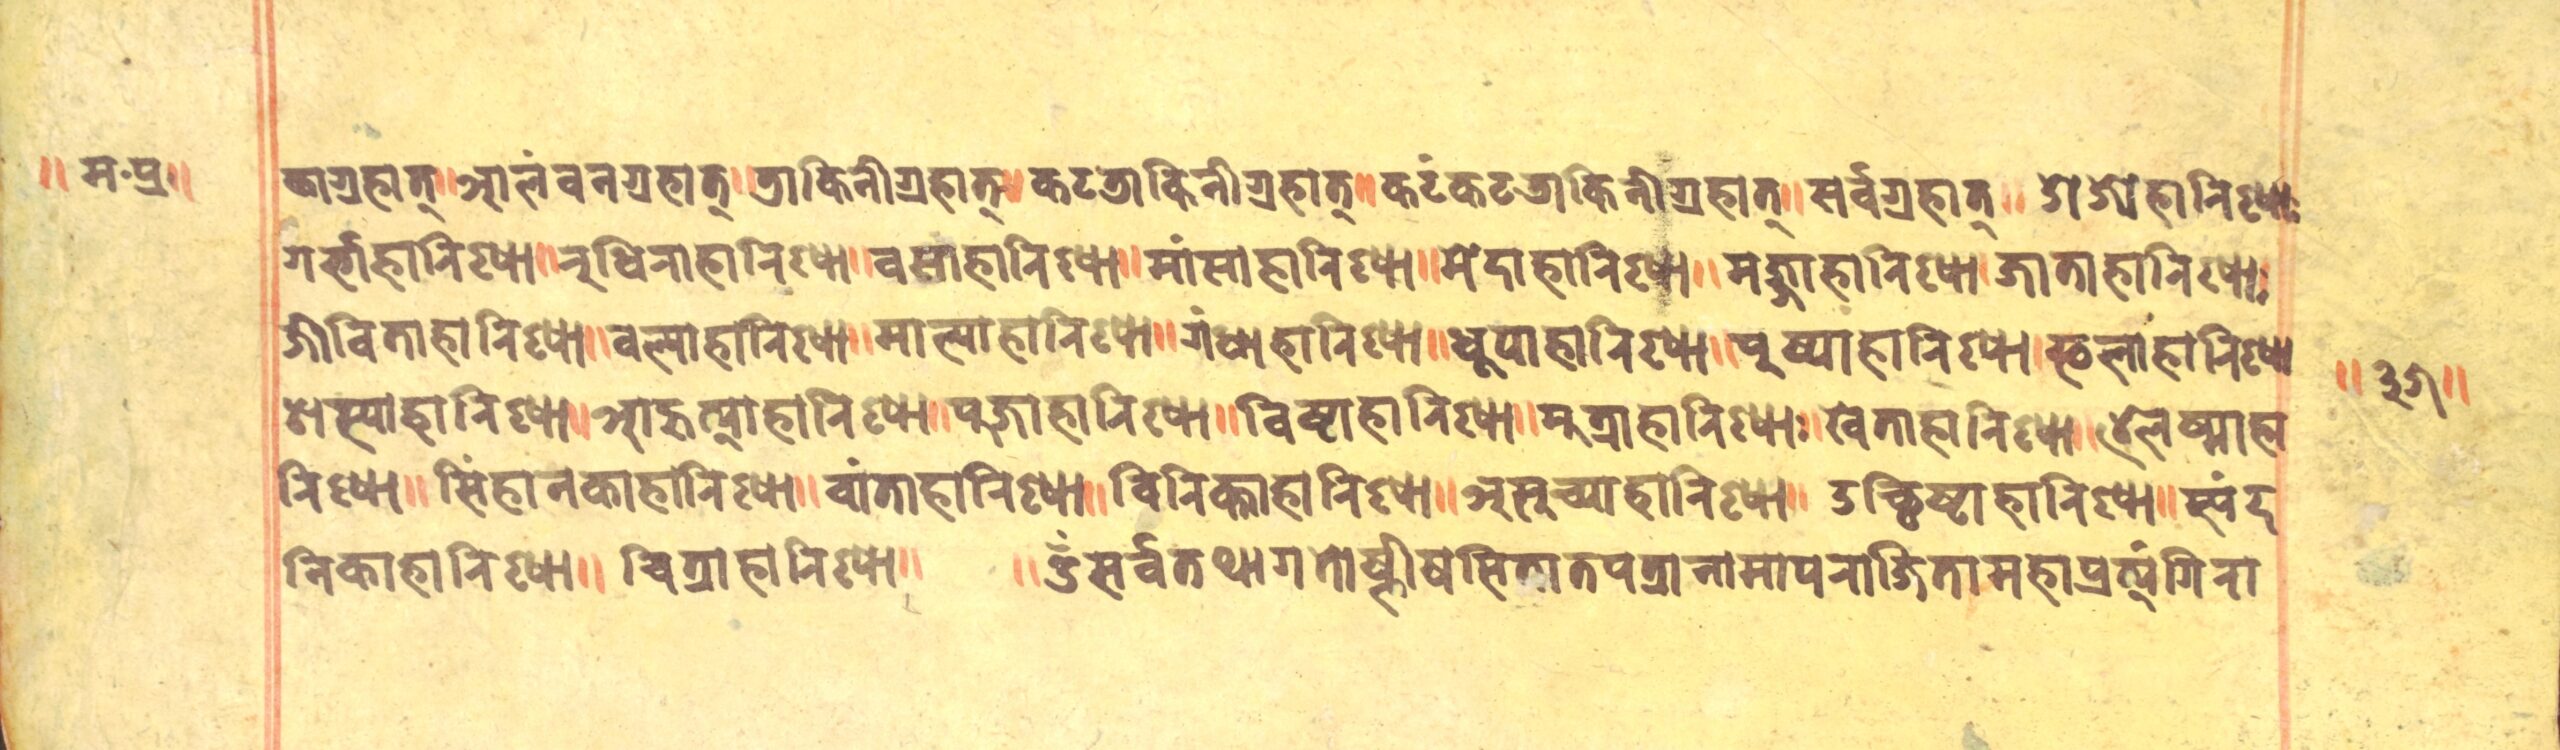 ॥ म॰प्र॥
काग्रहात्॥ आलंवनग्रहात्॥ डाकिनीग्रहात्॥ कटडाकिनीग्रहात्॥ कटंकटडाकिनीग्रहात्॥ सर्वग्रहात्॥ ओजोहारिण्याः
गर्भाहारिण्या॥ रुधिराहारिण्या॥ वसाहारिण्या॥ मांसाहारिण्या॥ मेदाहारिण्या॥ मज्जाहारिण्या॥ जाताहारिण्याः
जीविताहारिण्या॥ वल्याहारिण्या॥ माल्याहारिण्या॥ गंधाहारिण्या॥ धूपाहारिण्या॥ पुष्पाहारिण्या॥ फलाहारिण्या
शेस्याहारिण्या॥ आहुत्याहारिण्या॥ पुजाहारिण्या॥ विष्टाहारिण्या॥ मुत्राहारिण्याः॥ खेताहारिण्या॥ श्लेष्माहा
रिण्या॥ सिंहानकाहारिण्या॥ वांताहारिण्या॥ विरिक्ताहारिण्या॥ असुच्याहारिण्या॥ उच्छिष्टाहारिण्या॥ स्यंद
निकाहारिण्या॥ चित्राहारिण्या॥ ॥ उँसर्वतथागतोष्णीषसितातपत्रानामापराजितामहाप्रत्यंगिरा
॥ ३७॥